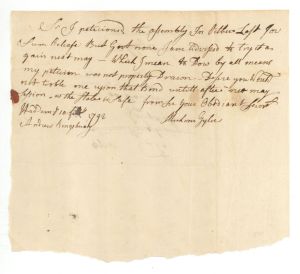 Sir I petitioned the assembly In October Last for
Sum Relefe But Got none I am advised to try it a
gain next may — Which I mean to Dow by all means
my petition was not properly Drawn — Desire you Would
not trobe me upon that Bond untill after next may
Session as the State is Safe from Sir your Obediant Servt
Haddam 10 1792
Andrew Kingsbury